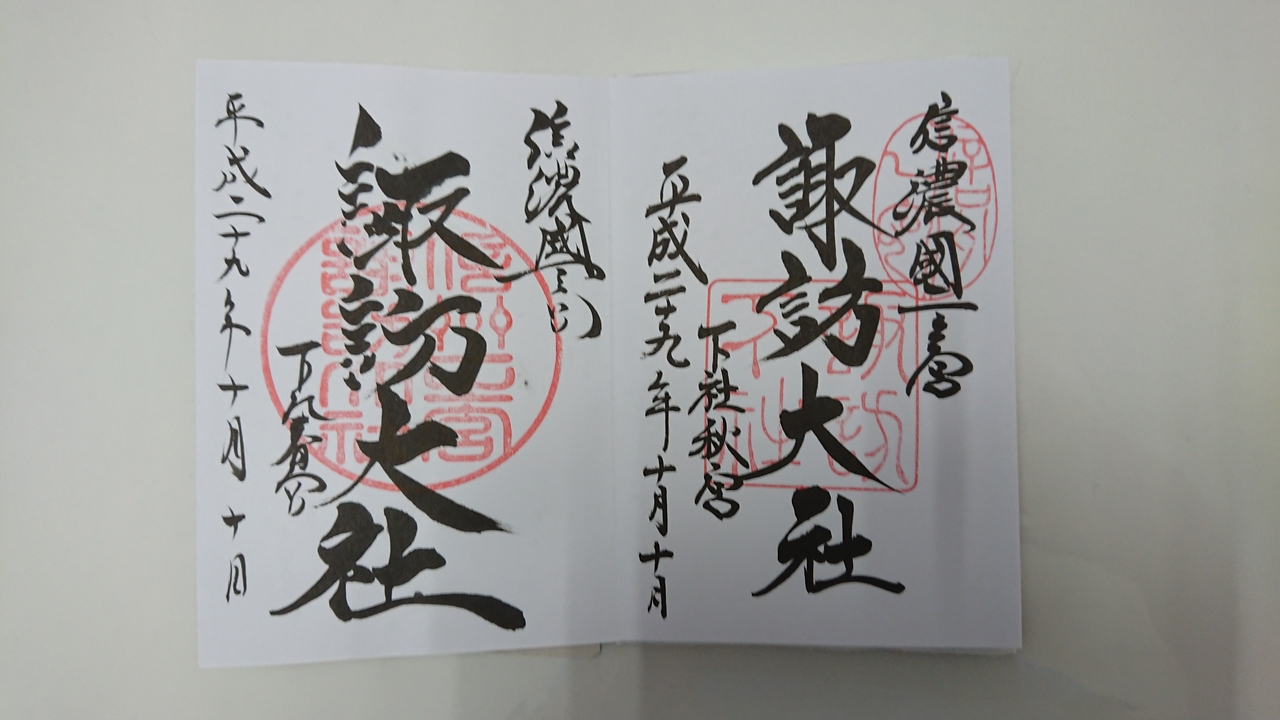 信濃國一之宮
諏訪大社
下社秋宮
平成二十九年十月十日
信濃國一之宮
諏訪大社
下社春宮
平成二十九年十月十日